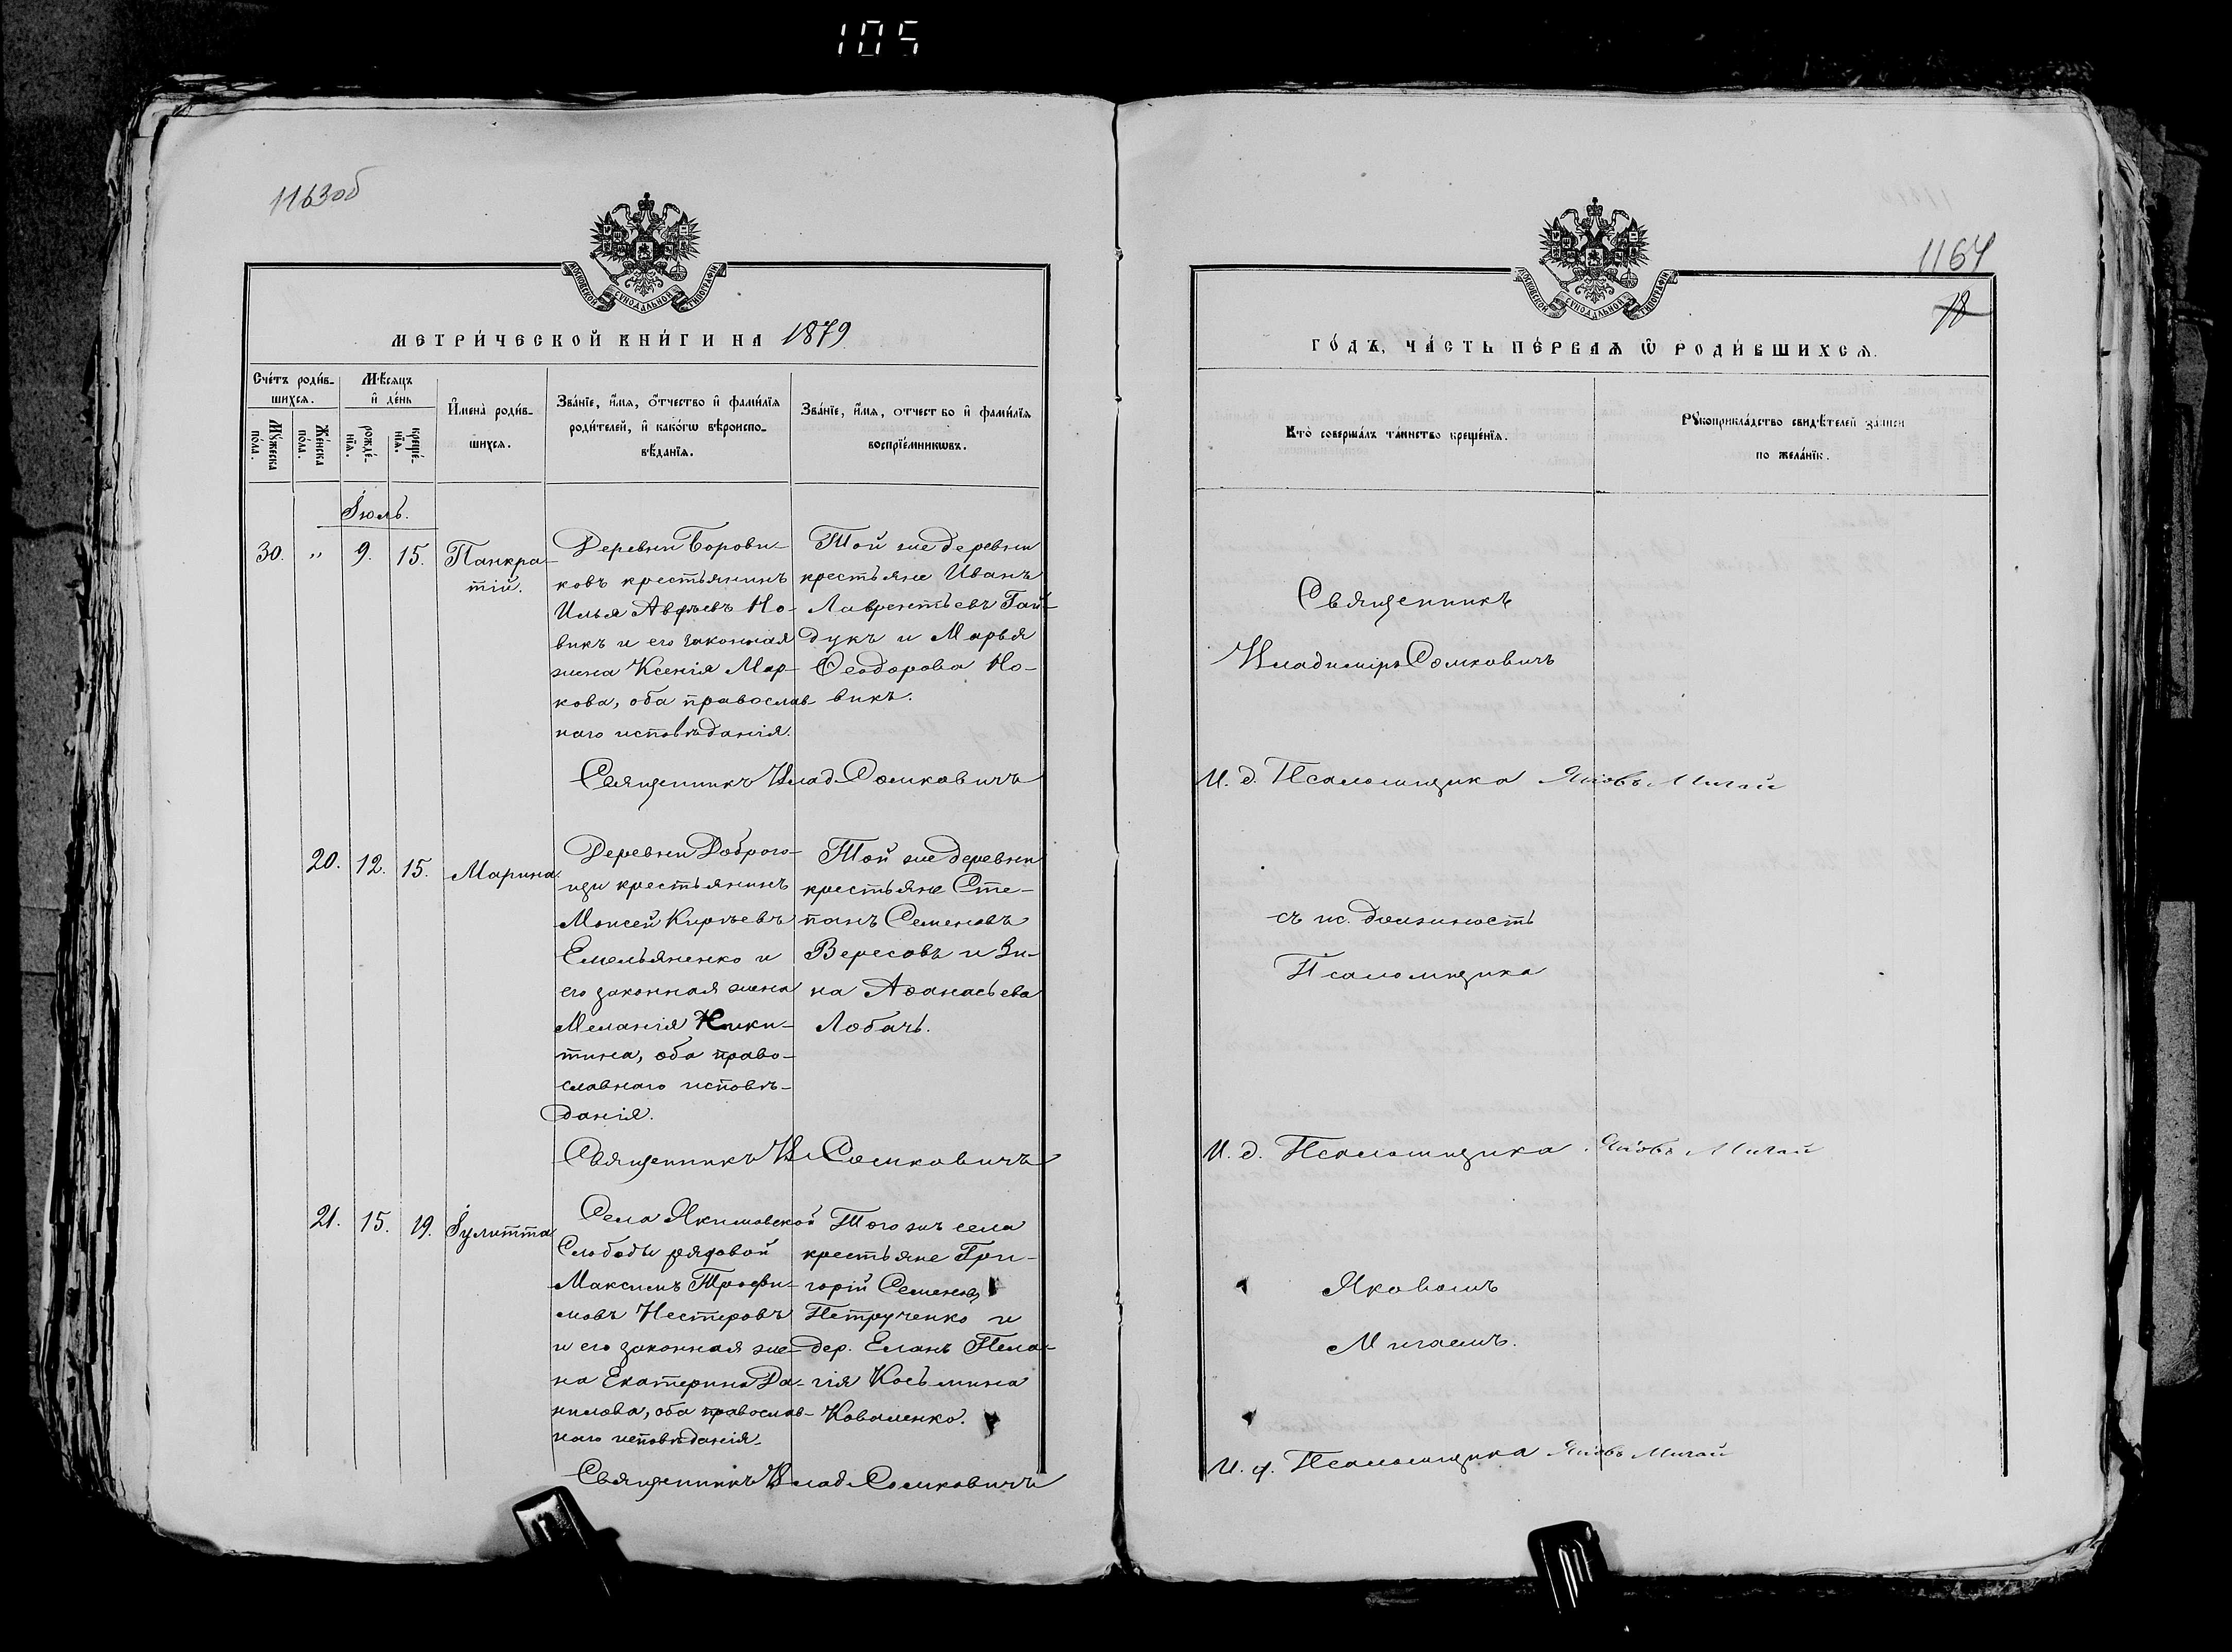 105
1163об
МОСКОВСКОЙ СѴНОДАЛЬНОЙ ТИПОГРАФІИ
МЕТРИ́ЧЕСКОЙ КНИ́ГИ НА 1879
Сче́тъ роди́в-
шихсѧ.
Мѣ́сѧцъ
и҆ де́нь
Мꙋ́жеска по́ла.
Же́нска по́ла.
рожде́-
нїѧ.
креще́-
нїѧ.
И҆мена̀ роди́в-
шихсѧ.
Зва́нїе, и҆́мѧ, ѻ҆́тчество и҆ фами́лїѧ
роди́телей, и҆ како́гѡ вѣроиспо-
вѣ́данїѧ.
Зва́нїе, и҆́мѧ, отчество и҆ фами́лїѧ
воспрїе́мникѡвъ.
Іюль.
30. „ 9. 15. Панкра-
тій.
Деревни Борови-
ковъ крестьянинъ
Илья Авдѣевъ Но-
викъ и его законная
жена Ксенія Мар-
кова, оба православ-
наго исповѣданія.
Той же деревни
крестьяне Иванъ
Лаврентьевъ Гай-
дукъ и Марья
Ѳеодорова Но-
викъ.
Священникъ Влад. Сомковичъ
20. 12. 15. Марина.
Деревни Доброго-
щи крестьянинъ
Моисей Кирѣевъ
Емельяненко и
его законная жена
Меланія Ники-
тина, оба право-
славнаго исповѣ-
данія.
Той же деревни
крестьяне Сте-
панъ Семеновъ
Вересовъ и Зи-
на Аѳанасьева
Лобачъ.
Священникъ Вл Сомковичъ
21. 15. 19. Іулитта
Села Якимовской
Слободы рядовой
Максимъ Трофи-
мовъ Нестеровъ
и его законная же-
на Екатерина Да-
нилова, оба православ-
наго исповѣданія.
Того жъ села
крестьяне Гри-
горій Семеновъ
Петрученко и
дер. Еланъ Пела-
гія Косьмина
Коваленко.
Священникъ Влад Сомковичъ
1164
МОСКОВСКОЙ СѴНОДАЛЬНОЙ ТИПОГРАФІИ
ГО́ДЪ, ЧА́СТЬ ПЕ́РВАѦ Ѿ РОДИ́ВШИХСѦ.
Кто̀ соверша́лъ та́инство креще́нїѧ.
Рꙋкоприкла́дство свидѣ́телей за́писи
по жела́нїю.
Священникъ
Владиміръ Сомковичъ
И. д. Псаломщика Яковъ Мигай
съ ис. должность
Псаломщика
И. д. Псаломщика Яковъ Мигай
Яковомъ
Мигаемъ.
И. д. Псаломщика Яковъ Мигай